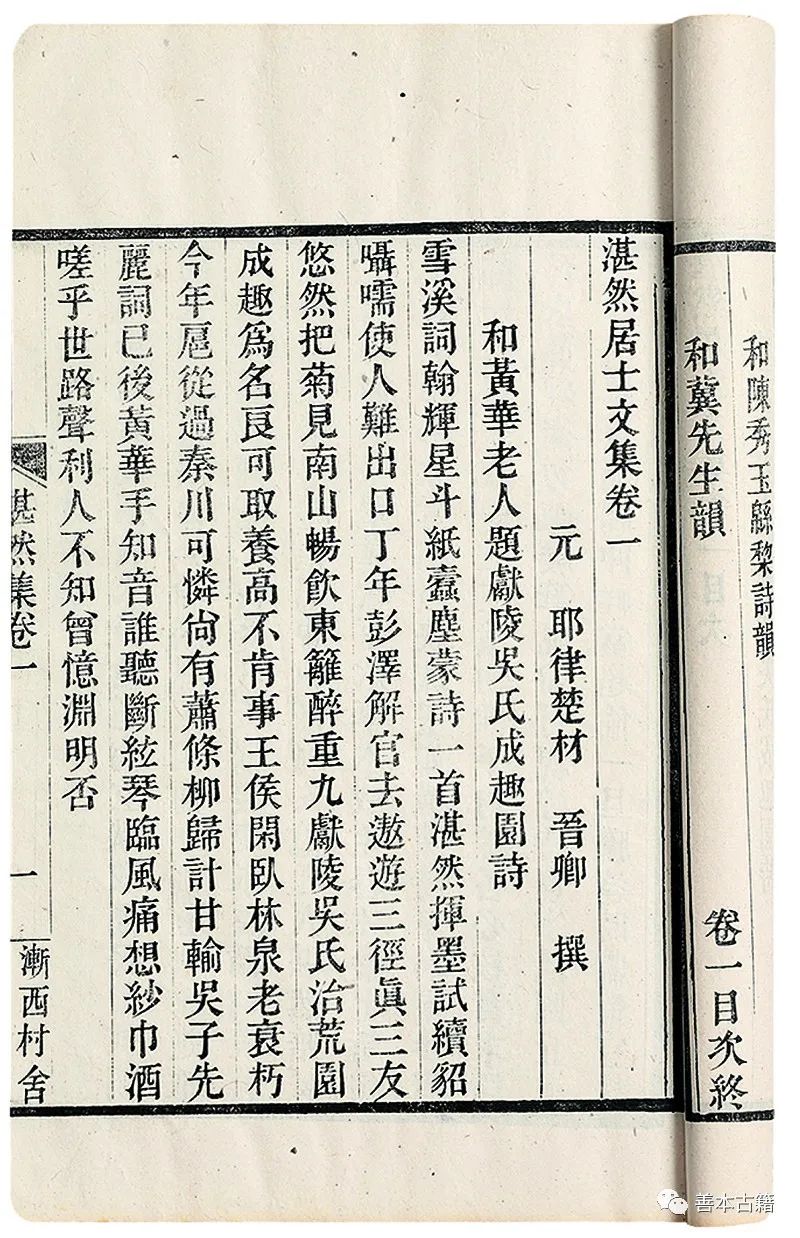 和陳秀玉緜棃詩韻
和冀先生韻
卷一目次終
湛然居士文集卷一
元 耶律楚材 晉卿 撰
和黃華老人題獻陵吳氏成趣園詩
雪溪詞翰輝星斗紙蠹塵蒙詩一首湛然揮墨試續貂
囁嚅使人難出口丁年彭澤解官去遨遊三徑眞三友
悠然把菊見南山暢飮東籬醉重九獻陵吳氏治荒園
成趣爲名良可取養高不肯事王侯閑臥林泉老衰朽
今年扈從過秦川可憐尙有蕭條柳歸計甘輸吳子先
麗詞已後黃華手知音誰聽斷絃琴臨風痛想紗巾酒
嗟乎世路聲利人不知曾憶淵明否
湛然集卷一
一
漸西村舍
善本古籍